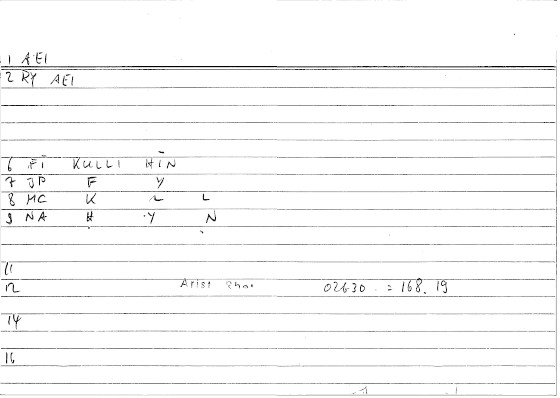 1 AEI
2 RY AEI
6 FI KULLI HIN
7 JP F Y
8 MC K ~ L
9 NA H Y N
11
12 Arist Rhet 02630 = 168.19
14
16